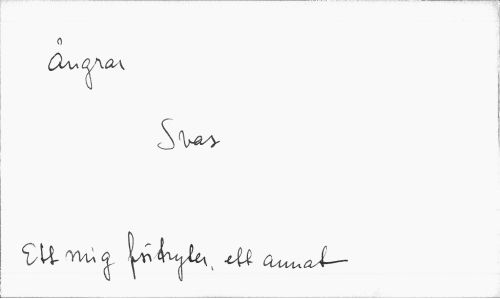 Ångrar
Svar
Ett mig förtryter, ett annat